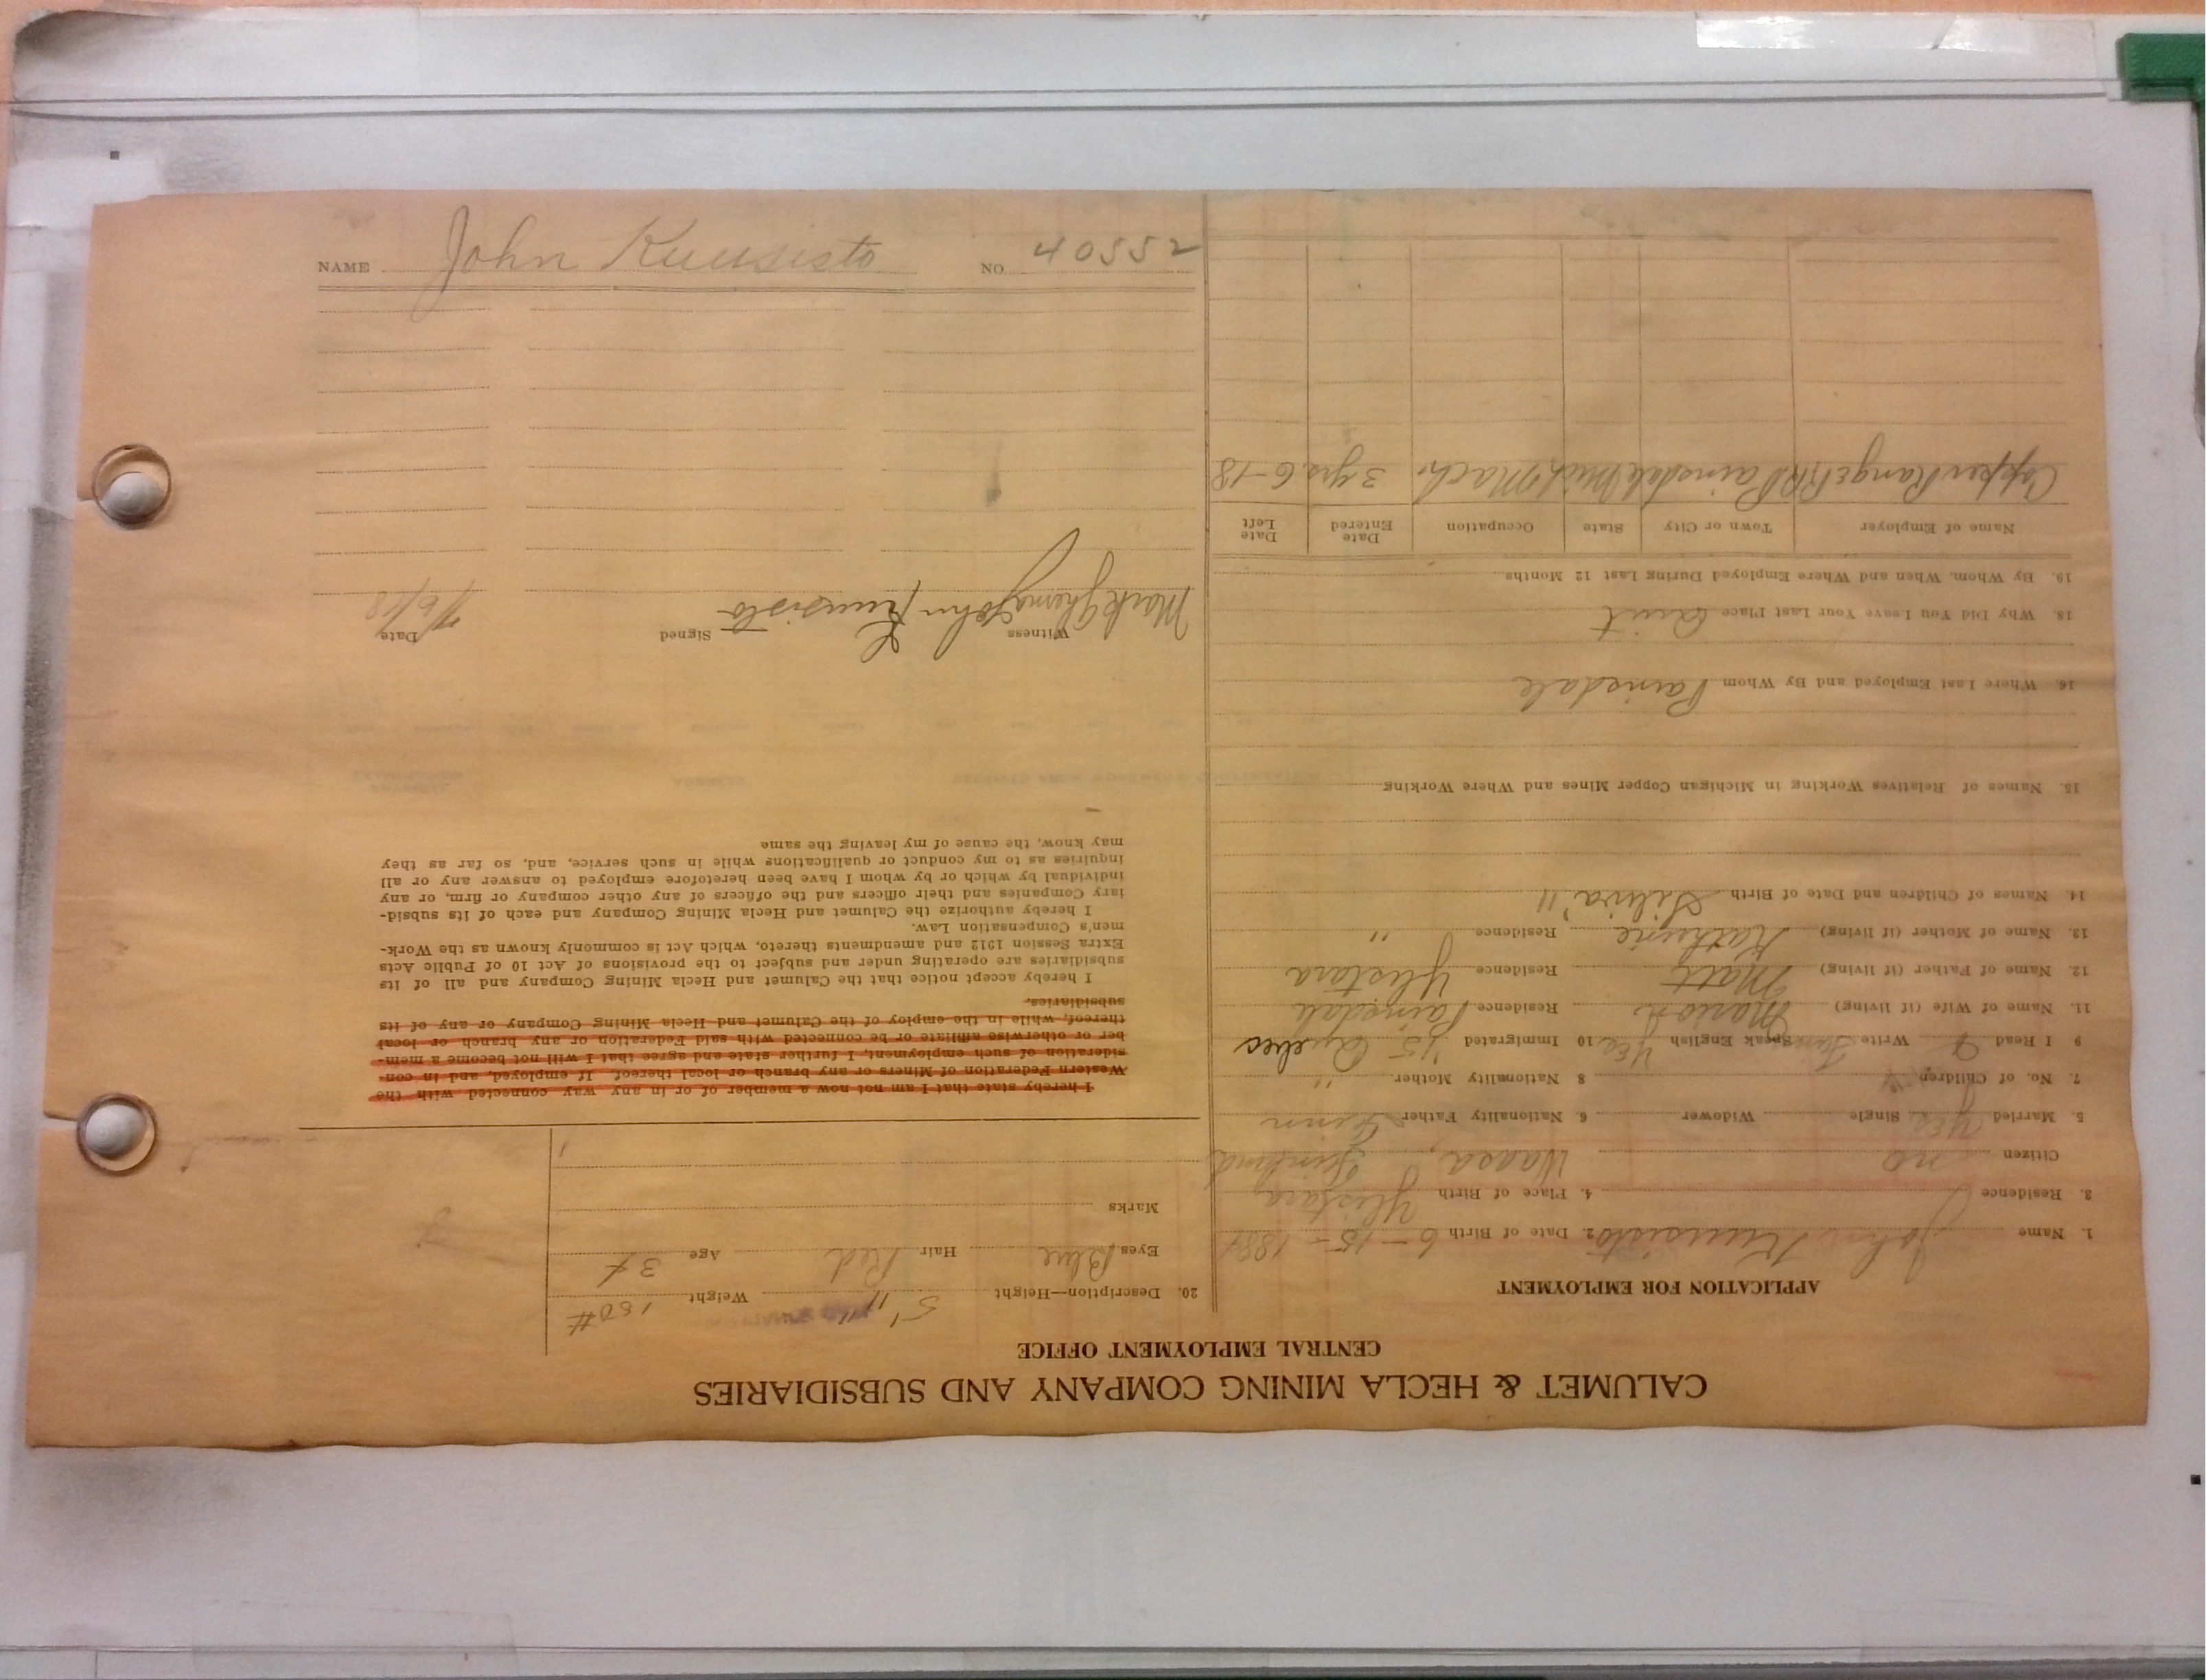 CALUMET & HECLA MINING COMPANY AND SUBSIDIARIES
CENTRAL EMPLOYMENT OFFICE
APPLICATION FOR EMPLOYMENT
1. Name John Kuusisto 2. Date of Birth 6-15-188
3. Residence 4. Place of Birth Ylistaro,
Citizen no Waasa, Finland
5. Married Yes Single Widower 6. Nationality Father Finn
7. No. of Children 8 Nationality Mother "
9 I Read Write Speak English Yes 10 Immigrated
11. Name of Wife (if living) Residence Painesdale
12. Name of Father (if living) Matt Residence
13. Name of Mother (if living) Katherine Residence "
14. Names of Children and Date of Birth
15. Names of Relatives Working in Michigan Copper Mines and Where Working
16. Where Last Employed and By Whom Painesdale
18. Why Did You Leave Your Last Place Quit
19. By Whom, When and Where Employed During Last 12 Months
Name of Employer Town or City State Occupation Date Entered Date Left
Copper Range Painesdale Mich Mach. 3 yrs. 6-18
20. Description—Height 5' 11" Weight #
Eyes Blue Hair Red Age
Marks
I hereby state that I am not now a member of or in any way connected with the
Western Federation of Miners or any branch or local thereof. If employed, and in con-
sideration of such employment, I further state and agree that I will not become a mem-
ber or otherwise affiliate or be connected with said Federation or any branch or local
thereof, while in the employ of the Calumet and Hecla Mining Company or any of its
subsidiaries.
I hereby accept notice that the Calumet and Hecla Mining Company and all of its
subsidiaries are operating under and subject to the provisions of Act 10 of Public Acts
Extra Session 1912 and amendments thereto, which Act is commonly known as the Work-
men's Compensation Law.
I hereby authorize the Calumet and Hecla Mining Company and each of its subsid-
iary Companies and their officers and the officers of any other company or firm, or any
individual by which or by whom I have been heretofore employed to answer any or all
inquiries as to my conduct or qualifications while in such service, and, so far as they
may know, the cause of my leaving the same
Witness Signed Date
Mark John Kuusisto
NAME John Kuusisto NO. 40552